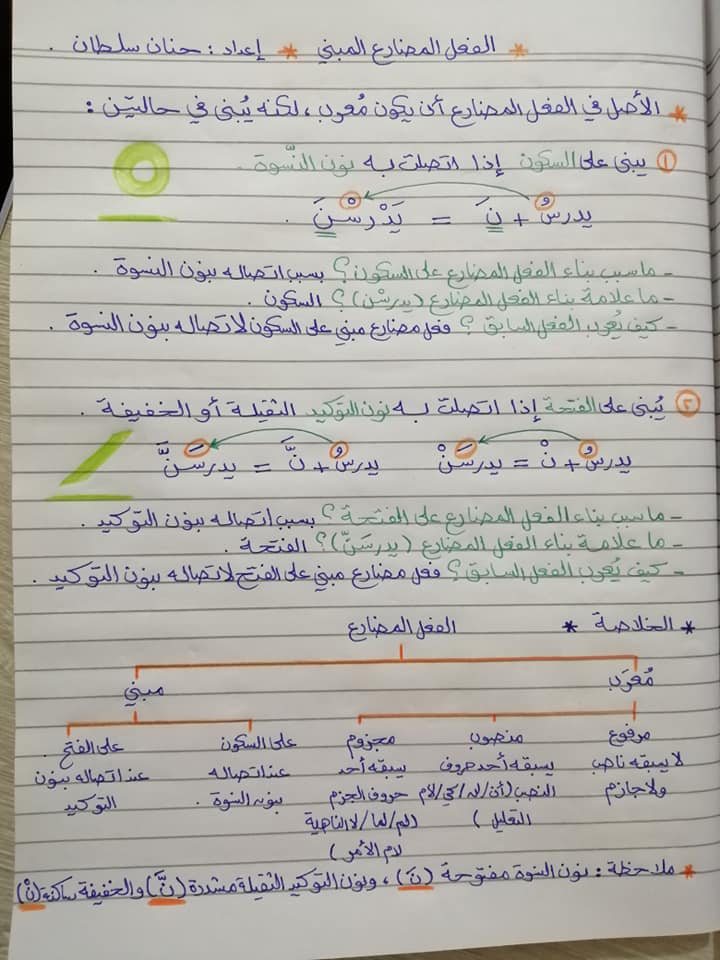 * الفعل المضارع المبني * إعداد : حنان سلطان .
* الأصل في الفعل المضارع أن يكون مُعرب ، لكنه يُبنى في حالتين :
١ يبنى على السكون إذا اتصلت به نون النّسوة .
يدرسُ + نَ = يَدْرسْنَ .
- ما سبب بناء الفعل المضارع على السكون ؟ بسبب اتصاله بنون النسوة .
- ما علامة بناء الفعل المضارع (يدرسْن) ؟ السكون .
- كيف يُعرب الفعل السابق ؟ فعل مضارع مبني على السكون لاتصاله بنون النسوة .
٢ يُبنى على الفتحة إذا اتصلت به نون التوكيد الثقيلة أو الخفيفة .
يدرسُ + نْ = يدرسَنْ يدرسُ + نَّ = يدرسَنَّ
- ما سبب بناء الفعل المضارع على الفتحة ؟ بسبب اتصاله بنون التوكيد .
- ما علامة بناء الفعل المضارع (يدرسَنّ) ؟ الفتحة .
- كيف يُعرب الفعل السابق ؟ فعل مضارع مبني على الفتح لاتصاله بنون التوكيد .
* الخلاصة * الفعل المضارع
مُعرَب مبني
مرفوع منصوب مجزوم على السكون على الفتح .
لا يسبقه ناصب يسبقه أحد حروف يسبقه أحد عند اتصاله عند اتصاله بنون
ولا جازم النصب (أن/لن/كي/لام حروف الجزم بنون النسوة . التوكيد
التعليل ) (لم/لما/لا الناهية
لام الأمر )
* ملاحظة : نون النسوة مفتوحة (نَ) ، ونون التوكيد الثقيلة مشددة (نَّ) والخفيفة ساكنة (نْ)